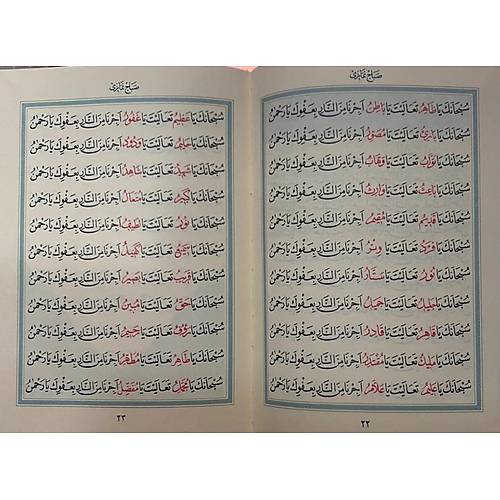 صباح نمازى
سُبْحَانَكَ يَا ظَاهِرُ تَعَالَيْتَ يَا بَاطِنُ اَجِرْنَا مِنَ النَّارِ بِعَفْوِكَ يَا رَحْمٰنُ
سُبْحَانَكَ يَا بَارِئُ تَعَالَيْتَ يَا مُصَوِّرُ اَجِرْنَا مِنَ النَّارِ بِعَفْوِكَ يَا رَحْمٰنُ
سُبْحَانَكَ يَا تَوَّابُ تَعَالَيْتَ يَا وَهَّابُ اَجِرْنَا مِنَ النَّارِ بِعَفْوِكَ يَا رَحْمٰنُ
سُبْحَانَكَ يَا بَاعِثُ تَعَالَيْتَ يَا وَارِثُ اَجِرْنَا مِنَ النَّارِ بِعَفْوِكَ يَا رَحْمٰنُ
سُبْحَانَكَ يَا قَدِيمُ تَعَالَيْتَ يَا مُقِيمُ اَجِرْنَا مِنَ النَّارِ بِعَفْوِكَ يَا رَحْمٰنُ
سُبْحَانَكَ يَا فَرْدُ تَعَالَيْتَ يَا وِتْرُ اَجِرْنَا مِنَ النَّارِ بِعَفْوِكَ يَا رَحْمٰنُ
سُبْحَانَكَ يَا نُورُ تَعَالَيْتَ يَا سَتَّارُ اَجِرْنَا مِنَ النَّارِ بِعَفْوِكَ يَا رَحْمٰنُ
سُبْحَانَكَ يَا جَلِيلُ تَعَالَيْتَ يَا جَمِيلُ اَجِرْنَا مِنَ النَّارِ بِعَفْوِكَ يَا رَحْمٰنُ
سُبْحَانَكَ يَا قَاهِرُ تَعَالَيْتَ يَا قَادِرُ اَجِرْنَا مِنَ النَّارِ بِعَفْوِكَ يَا رَحْمٰنُ
سُبْحَانَكَ يَا مَلِيكُ تَعَالَيْتَ يَا مُقْتَدِرُ اَجِرْنَا مِنَ النَّارِ بِعَفْوِكَ يَا رَحْمٰنُ
سُبْحَانَكَ يَا عَلِيمُ تَعَالَيْتَ يَا عَلَّامُ اَجِرْنَا مِنَ النَّارِ بِعَفْوِكَ يَا رَحْمٰنُ
٢٢
صباح نمازى
سُبْحَانَكَ يَا عَظِيمُ تَعَالَيْتَ يَا غَفُورُ اَجِرْنَا مِنَ النَّارِ بِعَفْوِكَ يَا رَحْمٰنُ
سُبْحَانَكَ يَا حَلِيمُ تَعَالَيْتَ يَا وَدُودُ اَجِرْنَا مِنَ النَّارِ بِعَفْوِكَ يَا رَحْمٰنُ
سُبْحَانَكَ يَا شَهِيدُ تَعَالَيْتَ يَا شَاهِدُ اَجِرْنَا مِنَ النَّارِ بِعَفْوِكَ يَا رَحْمٰنُ
سُبْحَانَكَ يَا كَبِيرُ تَعَالَيْتَ يَا مُتَعَالُ اَجِرْنَا مِنَ النَّارِ بِعَفْوِكَ يَا رَحْمٰنُ
سُبْحَانَكَ يَا نُورُ تَعَالَيْتَ يَا لَطِيفُ اَجِرْنَا مِنَ النَّارِ بِعَفْوِكَ يَا رَحْمٰنُ
سُبْحَانَكَ يَا سَمِيعُ تَعَالَيْتَ يَا كَفِيلُ اَجِرْنَا مِنَ النَّارِ بِعَفْوِكَ يَا رَحْمٰنُ
سُبْحَانَكَ يَا قَرِيبُ تَعَالَيْتَ يَا بَصِيرُ اَجِرْنَا مِنَ النَّارِ بِعَفْوِكَ يَا رَحْمٰنُ
سُبْحَانَكَ يَا حَقُّ تَعَالَيْتَ يَا مُبِينُ اَجِرْنَا مِنَ النَّارِ بِعَفْوِكَ يَا رَحْمٰنُ
سُبْحَانَكَ يَا رَؤُفُ تَعَالَيْتَ يَا رَحِيمُ اَجِرْنَا مِنَ النَّارِ بِعَفْوِكَ يَا رَحْمٰنُ
سُبْحَانَكَ يَا طَاهِرُ تَعَالَيْتَ يَا مُطَهِّرُ اَجِرْنَا مِنَ النَّارِ بِعَفْوِكَ يَا رَحْمٰنُ
سُبْحَانَكَ يَا مُجَمِّلُ تَعَالَيْتَ يَا مُفَضِّلُ اَجِرْنَا مِنَ النَّارِ بِعَفْوِكَ يَا رَحْمٰنُ
٢٣